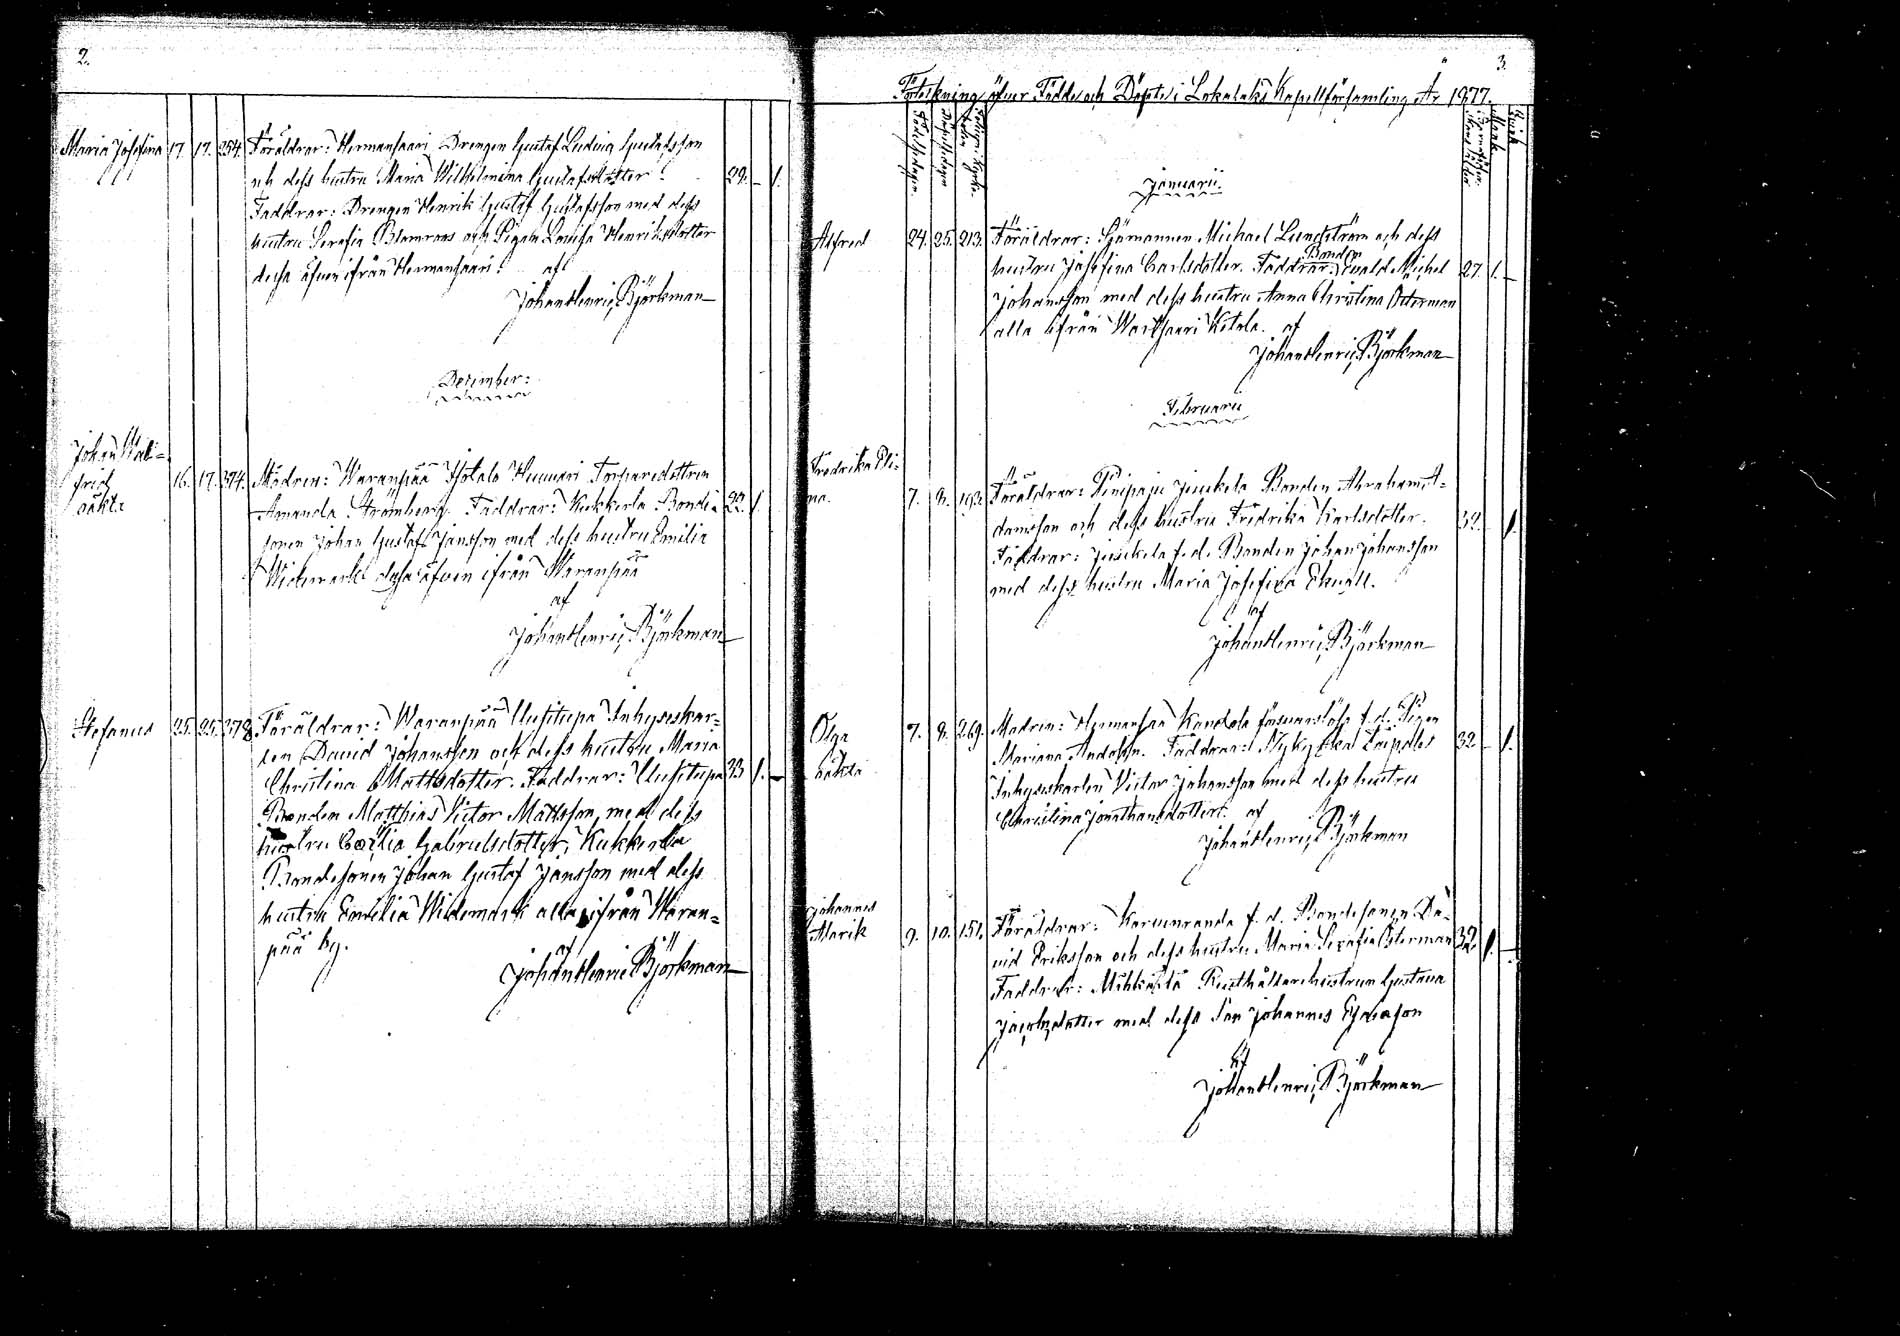 2.
Maria Josefina 17. 17. 254. Föräldrar: Hermansaari Drengen Gustaf Ludvig Gustafsson
och dess hustru Maria Wilhelmina Gustafsdotter. 22. – 1.
Faddrar: Drengen Henrik Gustaf Gustafsson med dess
hustru Serafia Blomroos och Pigan Lovisa Henriksdotter
dessa äfven ifrån Hermansaari. af
Johan Henric Björkman
December:
Johan Wal=
frid 16. 17. 374. Modren: Waranpää Torparedottren
oäkta Amanda Strömberg. Faddrar: Kukkerla Bonde- 22. 1.
sonen Johan Gustaf Jansson med dess hustru Emilia
Widemark dessa äfven ifrån Waranpää
af
Johan Henric Björkman
Stefanus 25. 25. 378. Föräldrar: Waranpää Uusitupa Inhyseskar=
len David Johansson och dess hustru Maria
Christina Mattsdotter. Faddrar: Uusitupa 33 1. –
Bonden Matthias Victor Mattsson med dess
hustru Cecilia Gabrielsdotter, Kukkerla
Bondesonen Johan Gustaf Jansson med dess
hustru Emilia Widemark alla ifrån Waran=
pää by.
af
Johan Henric Björkman
3.
Förteckning öfver Födde och Döpte i Lokalaks Kapellförsamling År 1877.
Födelsedagen. Döpelsedagen
Januarii.
Alfred 24. 25. 213. Föräldrar: Sjömannen Michael Lundström och dess
hustru Josefina Carlsdotter. Faddrar: Bonden Evald Michel 27. 1. –
Johansson med dess hustru Anna Christina Österman
alla ifrån Wartsaari Ketola. af
Johan Henric Björkman
Februarii
Fredrika Eli-
na. 7. 8. 193. Föräldrar: Pinipaju Juusela Bonden Abraham A=
damsson och dess hustru Fredrika Karlsdotter. 32. – 1.
Faddrar: f.d. Bonden Johan Johansson
med dess hustru Maria Josefina Ekvall.
af
Johan Henric Björkman
Olga 7. 8. 269. Modren: Hermansaa Kandola försvarslösa f.d. Pigan
oäkta Mariana Faddrar: Nykyrka 32. – 1.
Inhyseskarlen Victor Johansson med dess hustru
Christina Jonathansdotter. af
Johan Henric Björkman
Johannes
Alarik 9. 10. 151. Föräldrar: Karuunranda f.d. Bondesonen Da-
vid Eriksson och dess hustru Maria Serafia Österman 32. 1. –
Faddrar: Mihkkola Rusthållarehustrun Gustava
Jacobsdotter med dess Son Johannes Esaiason
af
Johan Henric Björkman